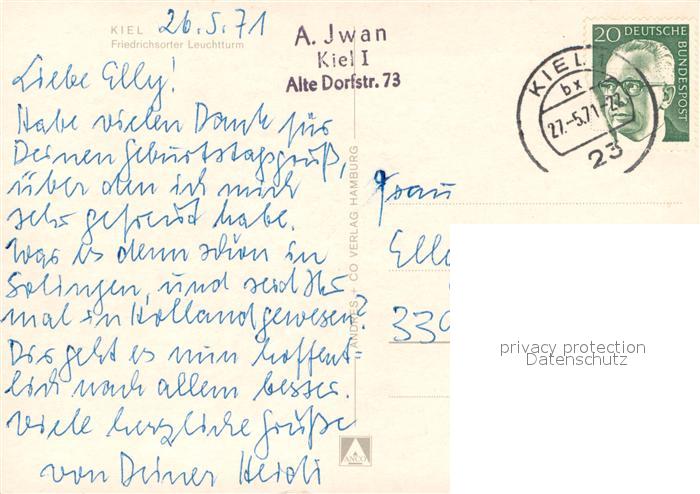 KIEL
Friedrichsorter Leuchtturm
26.5.71
A. Jwan
Kiel I
Alte Dorfstr. 73
Liebe Elly!
Habe vielen Dank für
Deinen Geburtstagsgruß,
über den ich mich
sehr gefreut habe.
War es denn schön in
Solingen, und seid Ihr
mal in Holland gewesen?
Dir geht es nun hoffent=
lich nach allem besser.
Viele herzliche Grüße
von Deiner Heidi
ANDRES + CO VERLAG HAMBURG
ANCO
20 DEUTSCHE
BUNDESPOST
KIEL 1
bx
27.-5.71-22
23
Frau
Elly
330
privacy protection
Datenschutz